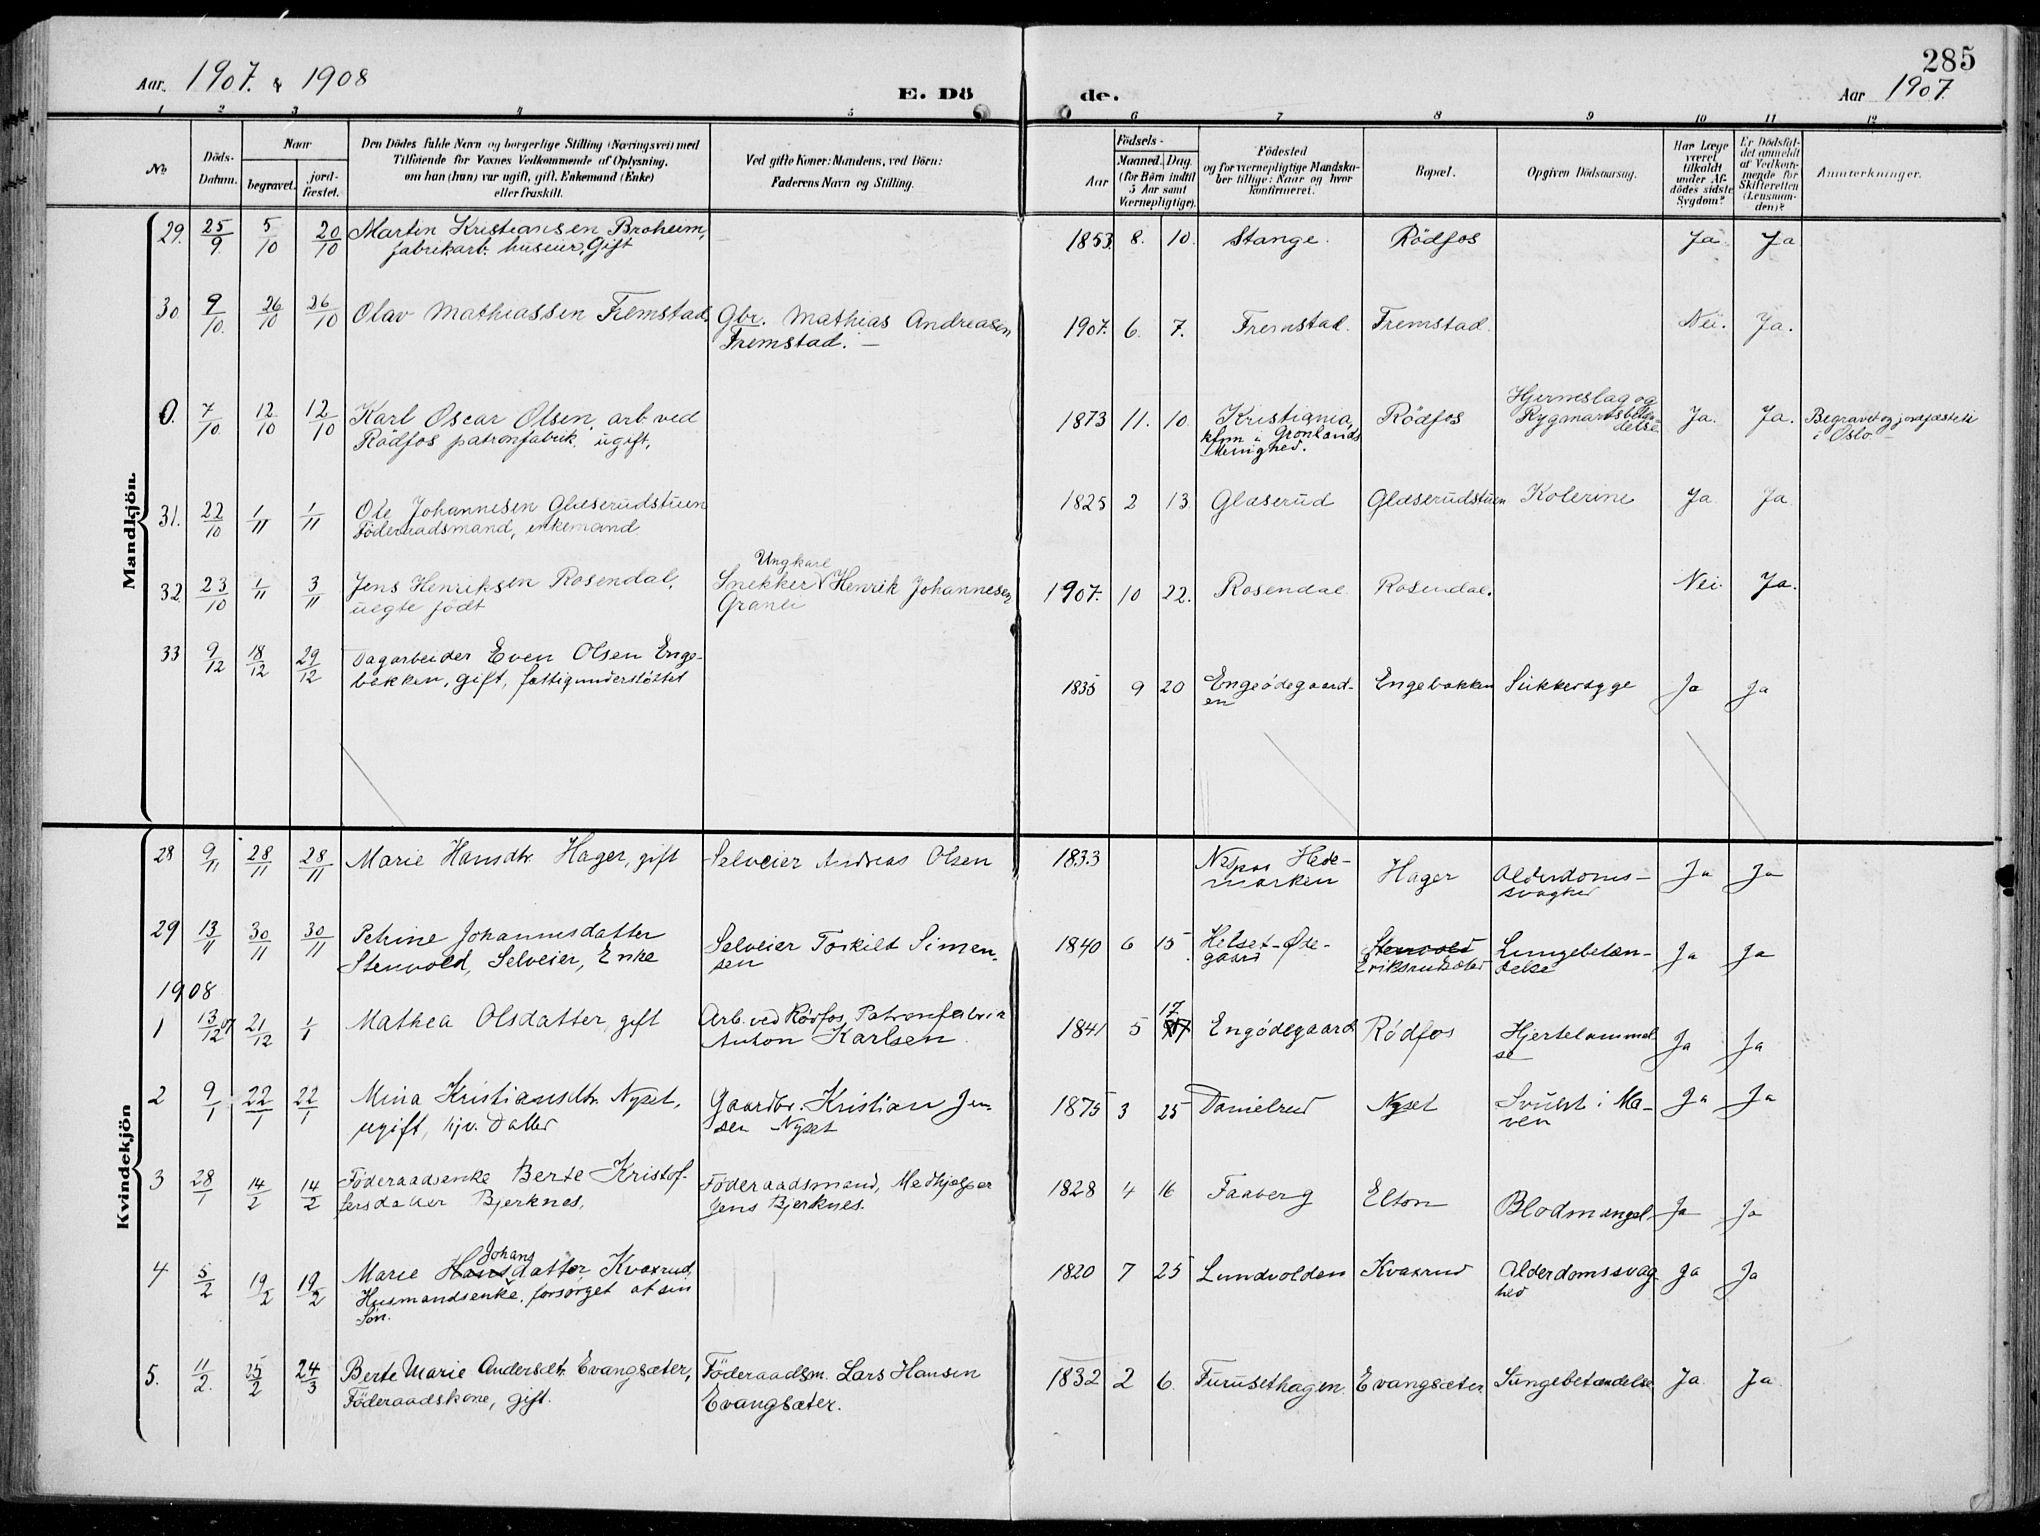 285
Aar 1907. & 1908
E. Dö
de.
Aar 1907.
1 2 3 4 5 6 7 8 9 10 11 12
No.
Döds-
Datum.
Naar
begravet.
jord-
fæstet.
Den Dödes fulde Navn og borgerlige Stilling (Næringsvei) med
Tilföiende for Voxnes Vedkommende af Oplysning,
om han (hun) var ugift, gift, Enkemand (Enke)
eller fraskilt.
Ved gifte Koner: Mandens, ved Börn:
Faderens Navn og Stilling.
Födsels-
Aar
Maaned.
Dag.
(for Börn indtil
5 Aar samt
Værnepligtige).
Födested
og for værnepligtige Mandska-
ber tillige: Naar og hvor
konfirmeret.
Bopæl.
Opgiven Dödsaarsag.
Har Læge
været
tilkaldt
under Af-
dödes sidste
Sygdom?
Er Dödsfal-
det anmeldt
af Vedkom-
mende for
Skifteretten
(Lensman-
den)?
Anmerkninger.
Mandkjön.
29. 25/9 5/10 20/10 Martin Kristiansen Broheim, 1853. 8. 10. Stange. Rödfos Ja. Ja
fabrikarb. huseier, Gift
30 9/10. 26/10 26/10 Olav Mathiassen Fremstad. Gbr. Mathias Andreasen 1907. 6. 7. Fremstad. Fremstad. Nei. Ja.
Fremstad. —
0. 7/10. 12/10 12/10 Karl Oscar Olsen, arb. ved 1873 11. 10. Kristiania, Rödfos Hjerneslag og Ja. Ja. Begravet og jordfæstet
Rödfos patronfabrik ugift. kfm i Grønlands Menighed. Rygmarvsbeten-delse i Oslo. —
31. 22/10 1/11 1/11 Ole Johannesen Glæserudstuen 1825 2 13. Glæserud Glæserudstuen Kolerine Ja. Ja.
Föderaadsmand, enkemand.
32. 23/10 1/11 3/11 Jens Henriksen Rosendal, Ungkarl Snekker Henrik Johannesen 1907. 10 22. Rosendal Rosendal. Nei. Ja.
uegte födt Graner
33 9/12 18/12 29/12 Dagarbeider Even Olsen Enge- 1835 9 20 Engeødegaard- Engebakken Sukkersyge Ja Ja
bakken, gift, fattigunderstöttet en
Kvindekjön
28 9/11 28/11 28/11 Marie Hansdtr. Hager, gift Selveier Andreas Olsen 1833 Næs paa Hede- Hager Alderdoms- Ja Ja
marken svaghed
29 13/11 30/11 30/11 Petrine Johannesdatter Selveier Torkild Simen- 1840 6 15. Helset-Øde- Stenvold Lungebetæn- Ja Ja
Stenvold, Selveier, Enke sen gaard Eriksrud delse
1908
1 13/12 07 21/12 1/1 Mathea Olsdatter, gift Arb. ved Rödfos Patronfabrik 1841 5 17 Engødegaard Rödfos Hjertelammel- Ja Ja
Anton Karlsen. se
2 9/1 22/1 22/1 Mina Kristiansdtr. Nyset, Gaardbr. Kristian Jen- 1875 3 25 Danielrud Nyset Svulst i Ma- Ja Ja
ugift, hjv. Datter sen Nyset ven
3 28/1 14/2 14/2 Föderaadsenke Berte Kristof- Föderaadsmand, Medhjelper 1828 4 16 Faaberg Elton Blodmangel Ja Ja
fersdatter Bjerknes, Jens Bjerknes.
4 5/2 19/2 19/2 Marie Hansdatter Johans Kvaxrud, 1820 7 25 Lundvolden Kvaxrud Alderdomssvag- Ja Ja
Husmandsenke, forsörget af sin hed
Sön.
5. 11/2. 25/2 24/3 Berte Marie Andersdtr. Evangsæter, Föderaadsm. Lars Hansen 1832 2 6. Furusethagen. Evangsæter Lungebetændelse Ja. Ja.
Föderaadskone, gift. Evangsæter.